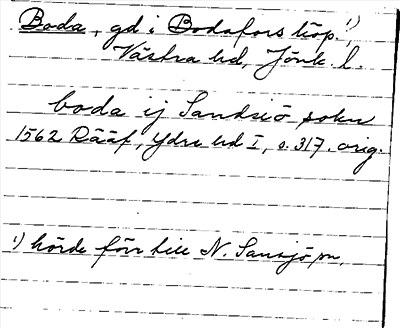 Boda, gd i Bodafors köp.¹),
Västra hd, Jönk. l.
boda ij Sandsiö sokn
1562 Rääf, Ydre hd I, s. 317. orig.
¹) hörde förr till N. Sansjö sn.